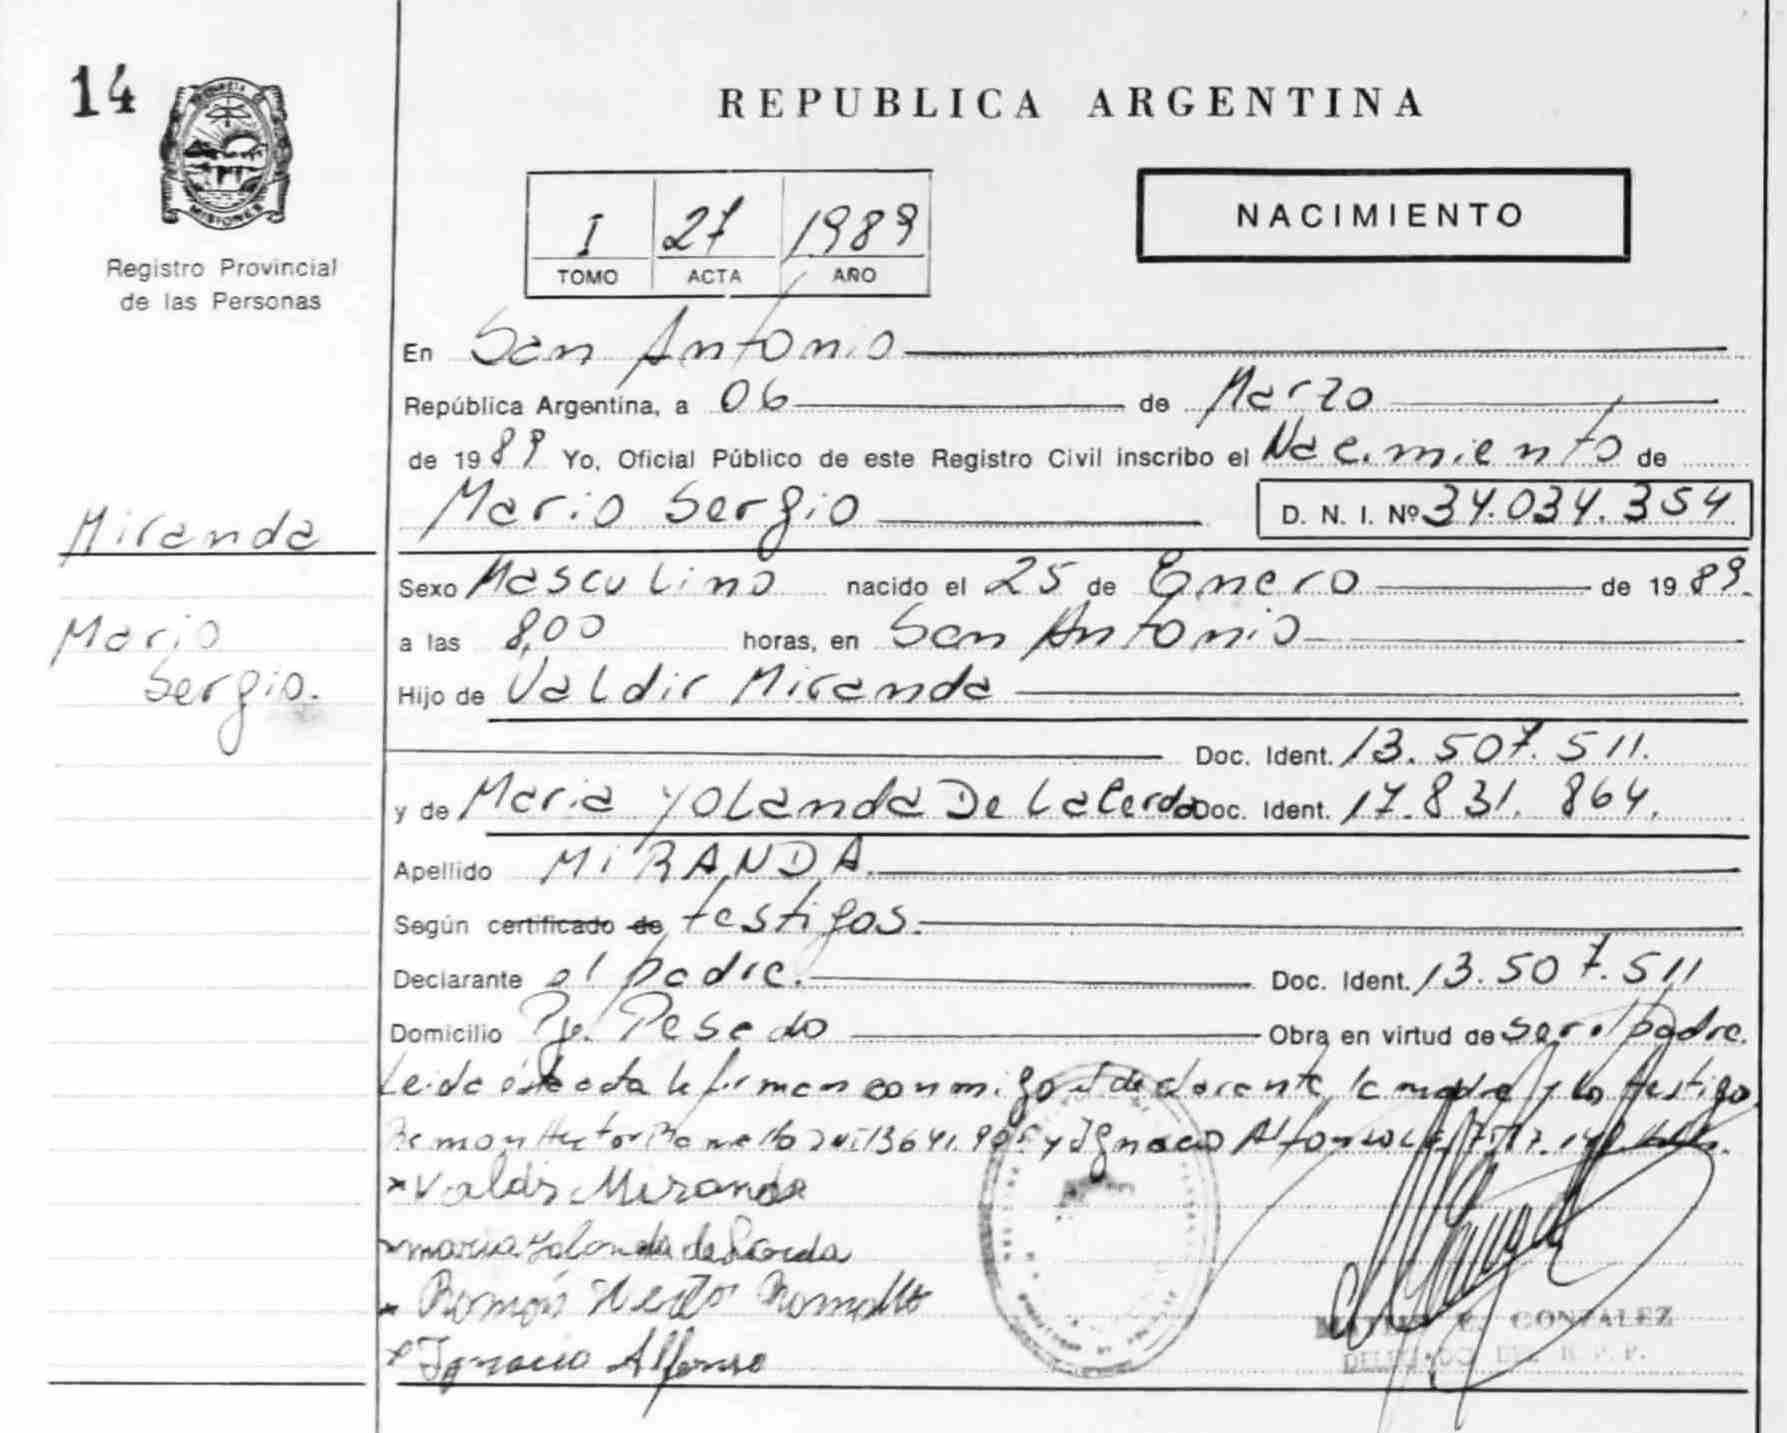 14
MISIONES
Registro Provincial
de las Personas
REPUBLICA ARGENTINA
I 27 1989
TOMO ACTA AÑO
NACIMIENTO
En San Antonio
República Argentina, a 06 de Marzo
de 1989 Yo, Oficial Público de este Registro Civil inscribo el Nacimiento de
Mario Sergio D. N. I. Nº 34.034.354
Miranda
Mario
Sergio.
Sexo Masculino nacido el 25 de Enero de 1989.
a las 8,00 horas, en San Antonio
Hijo de Valdir Miranda
Doc. Ident. 13.507.511.
y de Maria Yolanda De Lacerda Doc. Ident. 17.831.864.
Apellido MIRANDA.
Según certificado de testigos.
Declarante el padre. Doc. Ident. 13.507.511
Domicilio Pje. Pesado Obra en virtud de ser el padre.
Leida ésta acta la firman conmigo el declarante, la madre y los testigos
Ramon Hector y Ignacio Alfonso
Valdir Miranda
maria Yolanda de Lacerda
Ramón Hector
Ignacio Alfonso
GONZALEZ
DELEGADO DEL R. P. P.